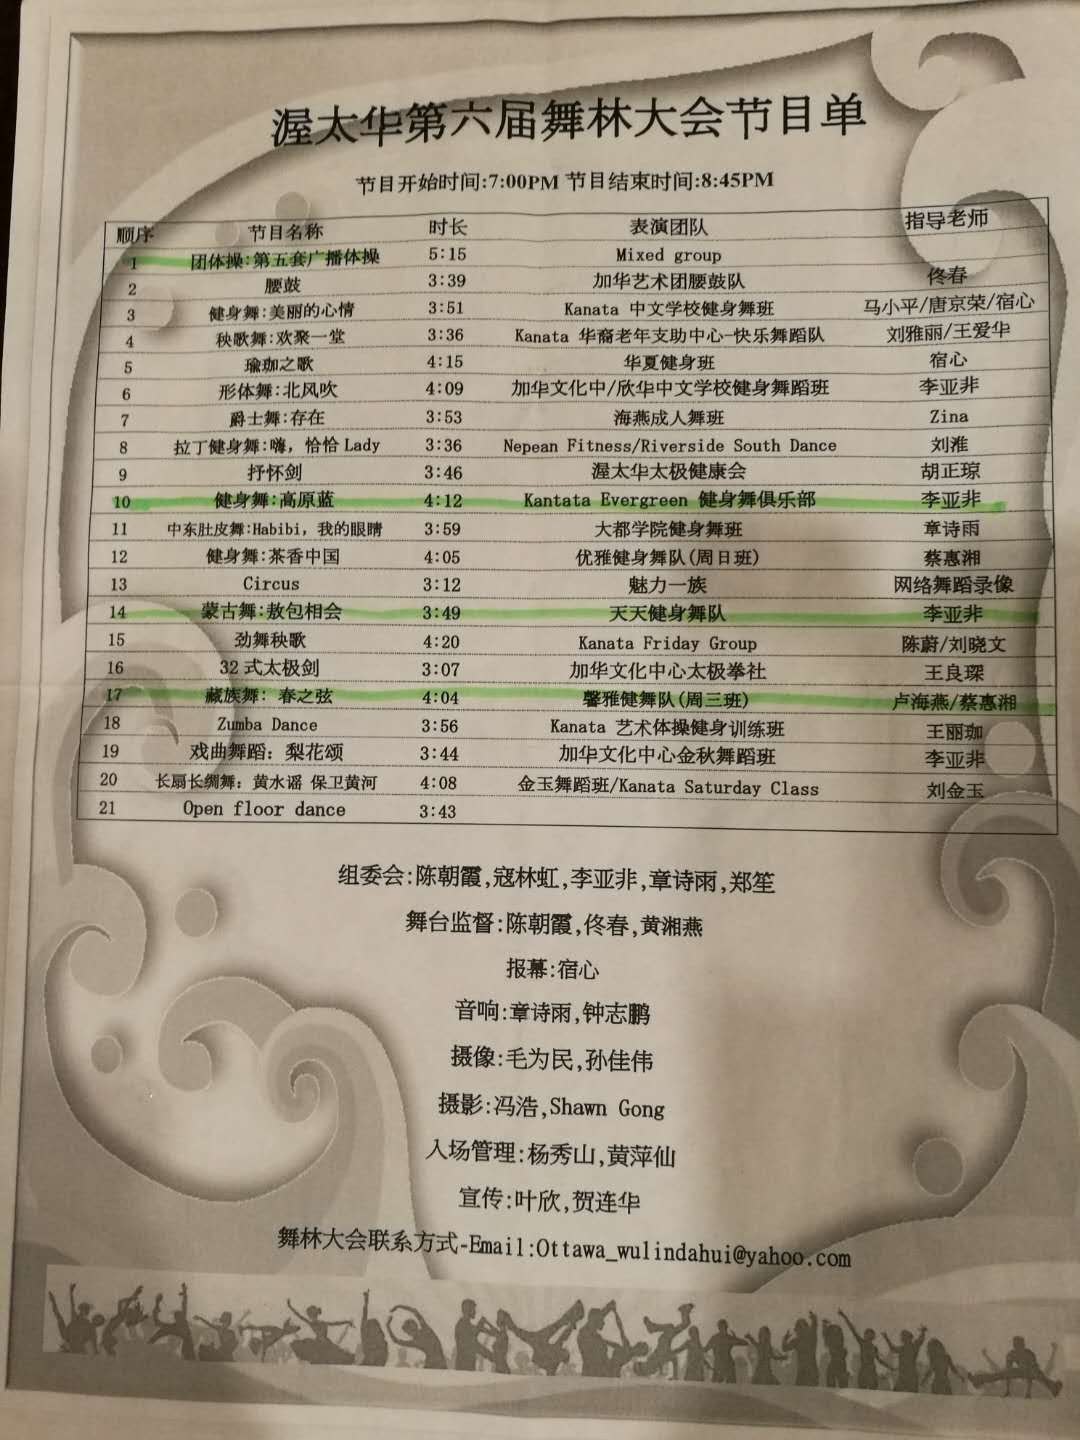 渥太华第六届舞林大会节目单
节目开始时间:7:00PM 节目结束时间:8:45PM
顺序 节目名称 时长 表演团队 指导老师
1 团体操:第五套广播体操 5:15 Mixed group
2 腰鼓 3:39 加华艺术团腰鼓队 佟春
3 健身舞:美丽的心情 3:51 Kanata 中文学校健身舞班 马小平/唐京荣/宿心
4 秧歌舞:欢聚一堂 3:36 Kanata 华裔老年支助中心-快乐舞蹈队 刘雅丽/王爱华
5 瑜珈之歌 4:15 华夏健身班 宿心
6 形体舞:北风吹 4:09 加华文化中/欣华中文学校健身舞蹈班 李亚非
7 爵士舞:存在 3:53 海燕成人舞班 Zina
8 拉丁健身舞:嗨，恰恰 Lady 3:36 Nepean Fitness/Riverside South Dance 刘淮
9 抒怀剑 3:46 渥太华太极健康会 胡正琼
10 健身舞:高原蓝 4:12 Kantata Evergreen 健身舞俱乐部 李亚非
11 中东肚皮舞:Habibi，我的眼睛 3:59 大都学院健身舞班 章诗雨
12 健身舞:茶香中国 4:05 优雅健身舞队(周日班) 蔡惠湘
13 Circus 3:12 魅力一族 网络舞蹈录像
14 蒙古舞:敖包相会 3:49 天天健身舞队 李亚非
15 劲舞秧歌 4:20 Kanata Friday Group 陈蔚/刘晓文
16 32 式太极剑 3:07 加华文化中心太极拳社 王良琛
17 藏族舞: 春之弦 4:04 馨雅健舞队(周三班) 卢海燕/蔡惠湘
18 Zumba Dance 3:56 Kanata 艺术体操健身训练班 王丽珈
19 戏曲舞蹈: 梨花颂 3:44 加华文化中心金秋舞蹈班 李亚非
20 长扇长绸舞: 黄水谣 保卫黄河 4:08 金玉舞蹈班/Kanata Saturday Class 刘金玉
21 Open floor dance 3:43
组委会:陈朝霞,寇林虹,李亚非,章诗雨,郑笙
舞台监督:陈朝霞,佟春,黄湘燕
报幕:宿心
音响:章诗雨,钟志鹏
摄像:毛为民,孙佳伟
摄影:冯浩,Shawn Gong
入场管理:杨秀山,黄萍仙
宣传:叶欣,贺连华
舞林大会联系方式-Email:Ottawa_wulindahui@yahoo.com